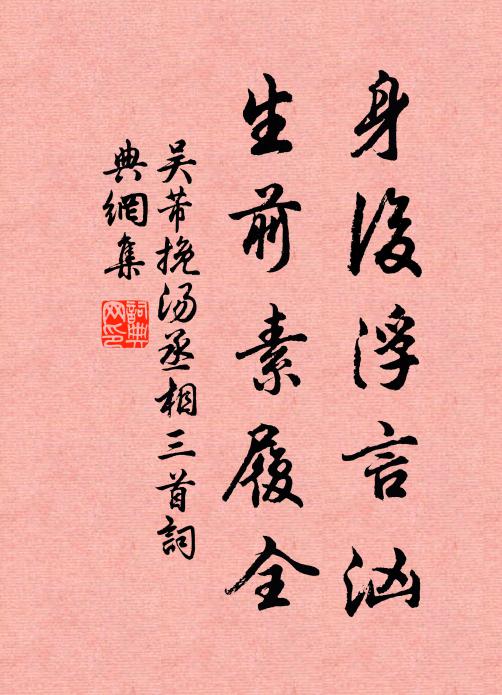 身後浮言汹
生前素履全
吴芾挽汤丞相三首詞
典網集
詞典
网印